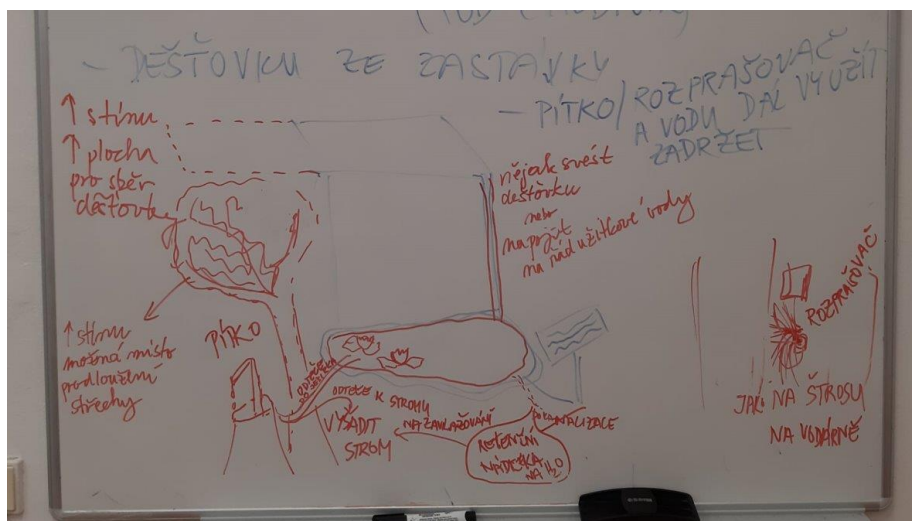 - DEŠŤOVKU ZE ZASTÁVKY
- PÍTKO/ROZPRAŠOVAČ
A VODU DÁL VYUŽÍT
ZADRŽET
↑ stínu
↑ plocha
pro sběr
dešťovky
nějak svést
dešťovku
nebo
napojit
na řád užitkové vody
↑ stínu
možná místo
prodloužení
střechy
PÍTKO
ODTEČE
ODTEČE K STROMU
VYSADIT
STROM
NA ZAVLAŽOVÁNÍ
RETENČNÍ
NÁDRŽKA
NA H2O
ROZPRAŠOVAČ
JAK NA ŠTROSU
NA VODÁRNĚ